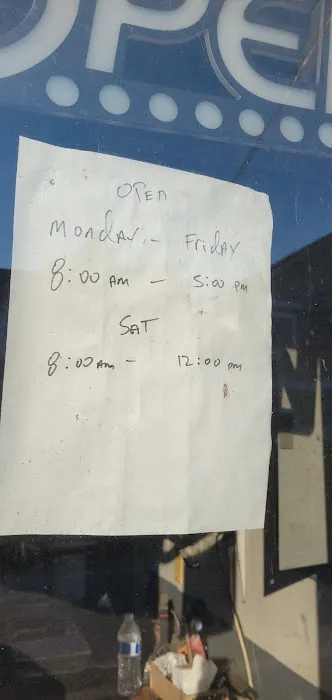 OPEN
OPEN
Monday - Friday
8:00 AM - 5:00 PM
SAT
8:00 AM - 12:00 PM